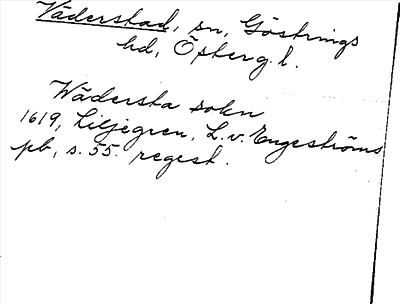 Väderstad, sn, Göstrings
hd, Östergl.
Wädersta sokn
1619, Liljegren, L. v. Engeströms
pb, s. 55. regest.